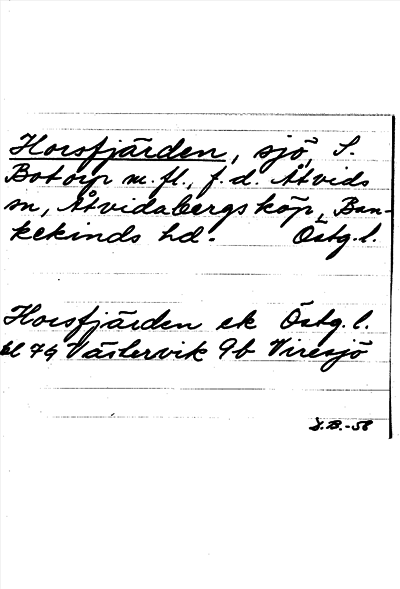 Horsfjärden, sjö, S.
Botorp m.fl., f.d. Åtvids
sn, Åtvidabergs köp, Ban-
kekinds hd. Östg.l.
Horsfjärden ek Östg.l.
bl 79 Västervik 9b Viresjö
J.B.-58